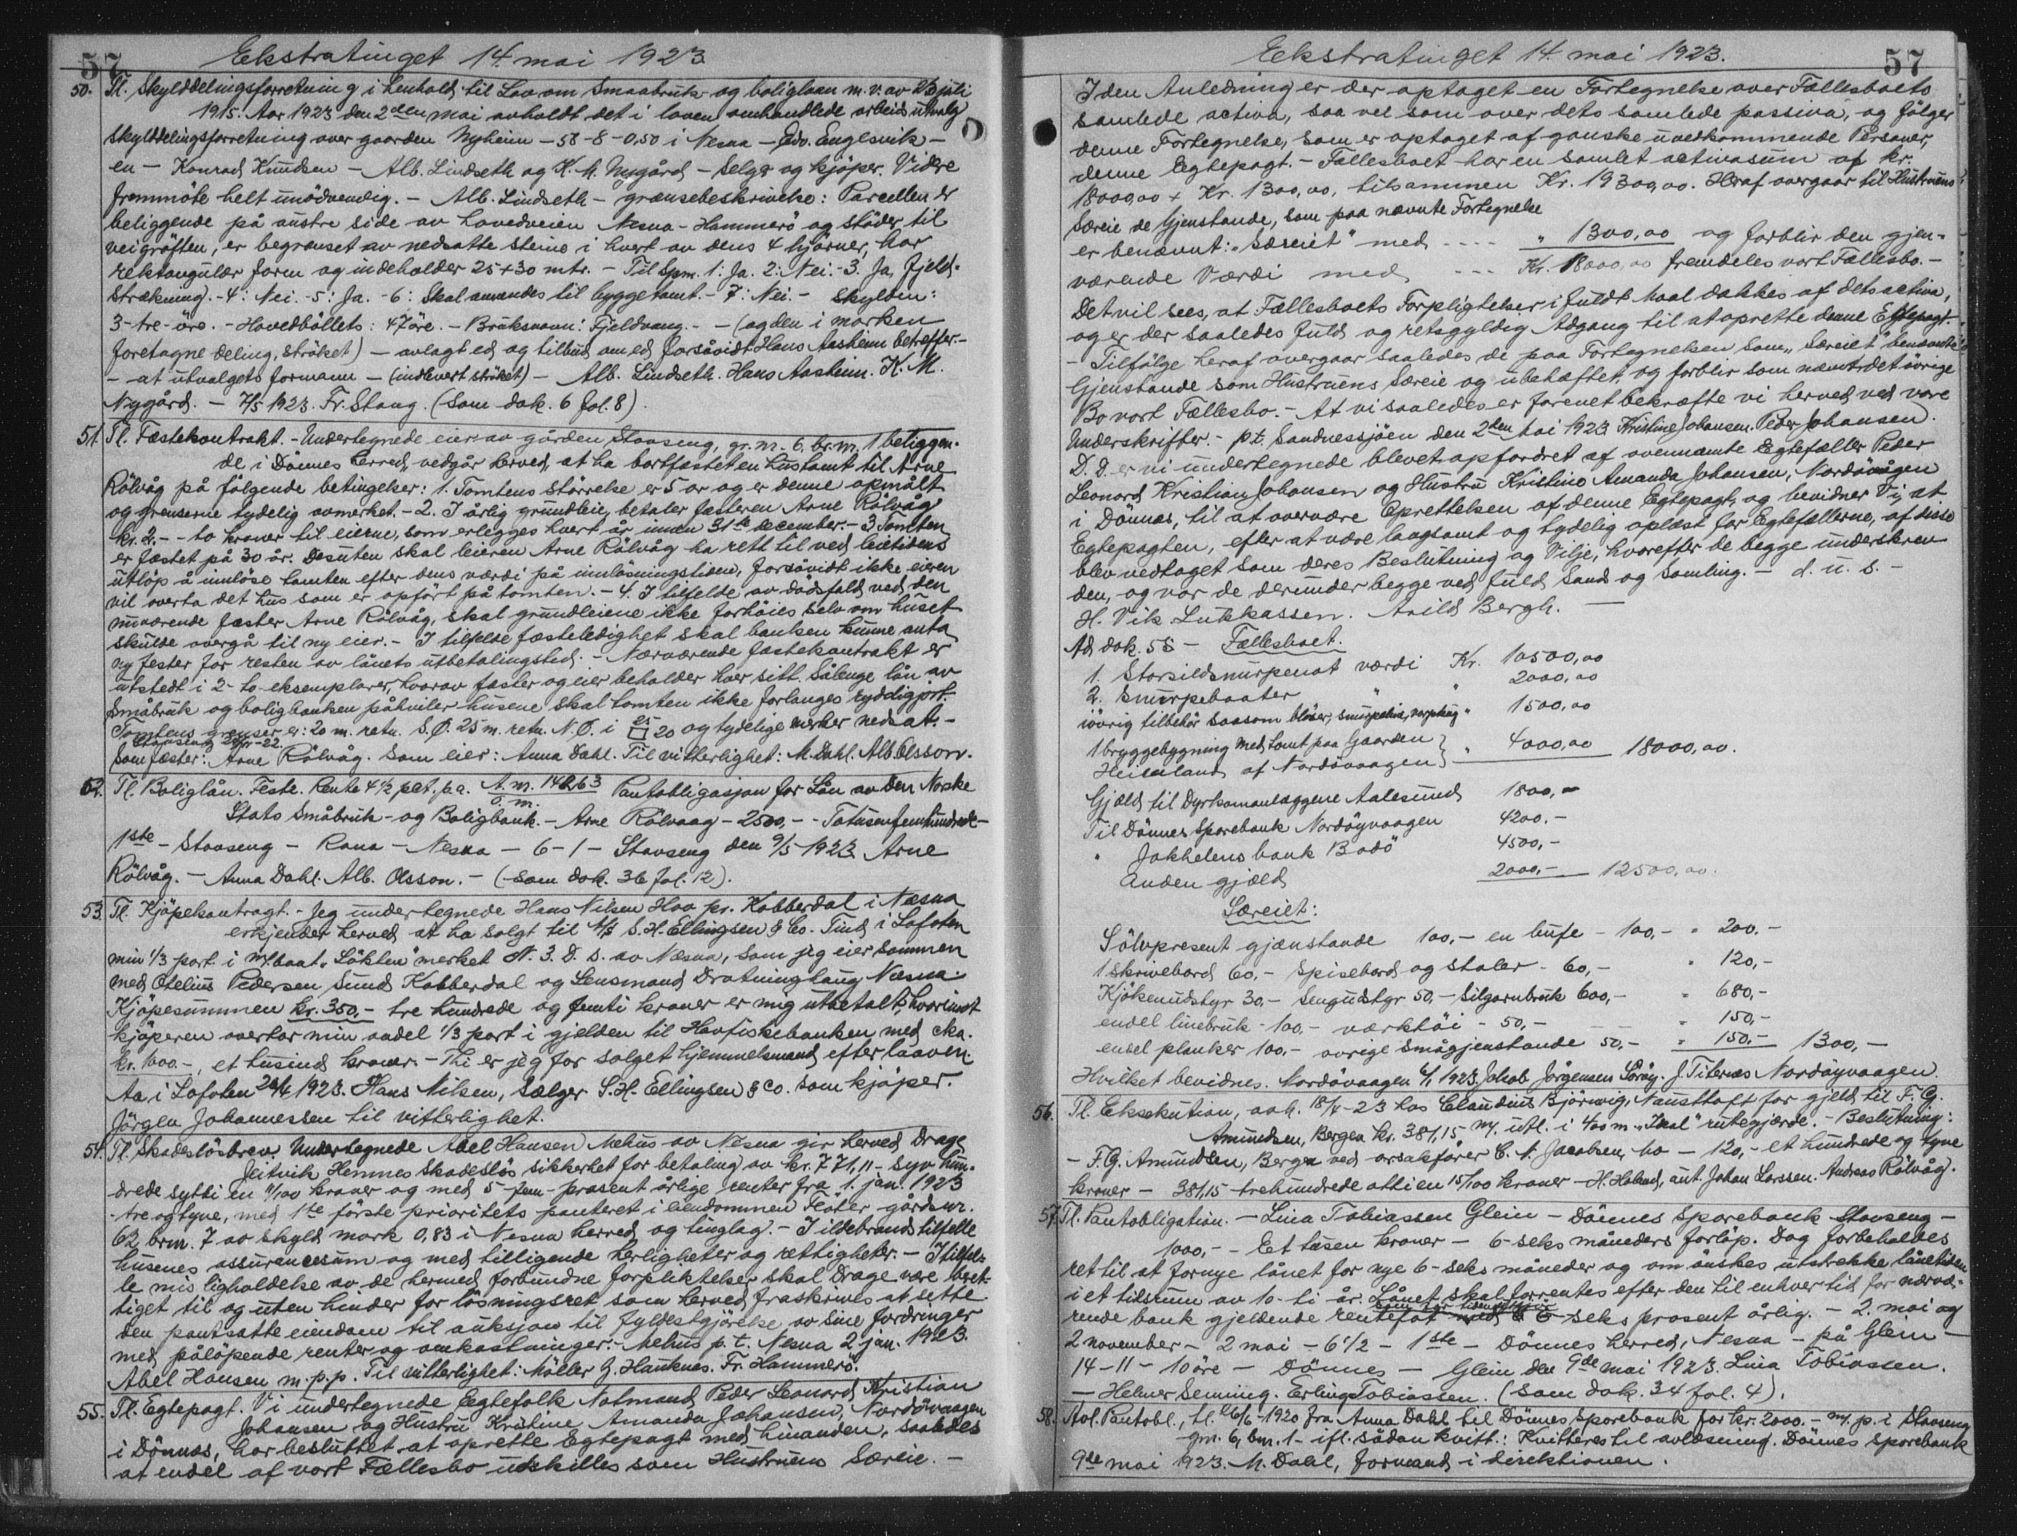 57
Ekstratinget 14. mai 1923
50. Tl. Skylddelingsforretning i henhold til Lov om Smaabruk og boliglaan m. v. av 23 juli
1915. Aar 1923 den 2den mai avholdt det i loven omhandlede arbeidsutvalg
skylddelingsforretning over gaarden Nyheim - 58-8-0,50 i Nesna - Edv. Englesvik -
en - Konrad Knudsen - Alb. Lindseth og K. M. Nygård - Selger og kjöper. Videre
fremmöte helt unödvendig. - Alb. Lindseth - grænsebeskrivelse: Parcellen er
beliggende på austre side av hovedveien Nesna - Hammerö og stöder til
veigröften, er begrænset av nedsatte steine i hvert av dens 4 hjörner, har
rektangulær form og indeholder 25 + 30 mtr. - Til Spm. 1: Ja. 2: Nei. - 3. Ja, fjeld-
strækning. - 4: Nei. - 5: Ja. - 6: Skal anvendes til byggetomt. - 7: Nei. - Skylden:
3 - tre - öre. - Hovedböllets: 47 öre. - Bruksnavn: Fjeldvang. - - (og den i marken
foretagne deling, ströket) - avlagt ed og tilbud om ed forsåvidt Hans Aasheim betræffer. -
- at utvalgets formann - (indlevert ströket) - Alb. Lindseth. Hans Aasheim. K. M.
Nygård. - 7/5 1923. Fr. Stang. (Som dok. 6 fol. 8).
51. Tl. Fæstekontrakt. - Undertegnede eier av gården Stavseng, gr. m. 6 br. m. 1 beliggen-
de i Dönnes herred, vedgår herved, at ha bortfæstet en hustomt til Arne
Rölvåg på fölgende betingelser: 1. Tomtens störrelse er 5 ar og er denne opmålt
og grenserne tydelig avmerket. - 2. I årlig grundleie betaler fæsteren Arne Rölvåg
kr. 2. - - to kroner til eierne, som erlegges hvert år innen 31te december. - 3 Tomten
er fæstet på 30 år. Desuten skal leieren Arne Rölvåg ha rett til ved leietidens
utlöp å innlöse tomten efter dens værdi på innlösningstiden, forsåvidt ikke eieren
vil overta det hus som er opfört på tomten. - 4. I tilfelde av dödsfald ved den
nuværende fæster Arne Rölvåg, skal grundleiene ikke forhöies selv om huset
skulde overgå til ny eier. - I tilfelde fæsteledighet skal banken kunne anta
ny fester for resten av lånets utbetalingstid. - Nærværende fæstekontrakt er
utstedt i 2 - to eksemplarer, hvorav fæster og eier beholder hver sitt. Sålenge lån av
Småbruk og boligbanken påhviler husene skal tomten ikke forlanges ryddiggjort.
Tomtens grenser er: 20 m. retn. S.Ö. 25 m. retn. N.Ö. i 25 20 og tydelige merker nedsat. -
Stavseng
Som fæster: Arne Rölvåg. Som eier: Anna Dahl. Til vitterlighet: M. Dahl. Alb. Olsson.
52. Tl. Boliglån. Feste. Rente 4 1/2 pct. p.a. A.m. 14863 Pantobligasjon for Lån av Den Norske
Stats Småbruk - og Boligbank. - Arne Rölvaag - 2500,- - Totusenfemhundrede -
1ste - Stavseng - Rana - Nesna - 6 - 1 - Stavseng den 9/5 1923 Arne
Rölvåg. - Anna Dahl. Alb. Olsson. - (Som dok. 36 fol. 12).
53. Tl. Kjöpekontragt. - Jeg undertegnede Hans Nilsen Hov pr. Kobberdal i Næsna
erkjender herved at ha solgt til A/S S. H. Ellingsen & Co. Tind i Lofoten
min 1/3 part i m/baat "Löklin" merket N. 3. D. s. av Næsna, som jeg eier sammen
med Otelius Pedersen Sund Kobberdal og Lensmand Dratninghaug Næsna.
Kjöpesummen kr. 350,- tre hundrede og femti kroner er mig utbetalt, hvorimot
kjöperen overtar min andel 1/3 part i gjelden til Havfiskebanken med cka.
kr. 1000,-, et tusind kroner. - Thi er jeg for solget hjemmelsmand efter loven.
Aa i Lofoten 24/4 1923. Hans Nilsen, Sælger. S. H. Ellingsen & Co. som kjöper.
Jörgen Johannessen til vitterlighet.
54. Tl. Skadeslösbrev. Undertegnede Abel Hansen Mehus av Nesna gir herved Drage
Leitvik Hemnes skadeslös sikkerhet for betaling av kr. 771,11 - syv hun-
drede sytti en 11/100 kroner og med 5 - fem - prosent årlige renter fra 1. jan. 1923
- tre og tyve, med 1ste förste prioritets panteret i eiendommen Flöter gårdsnr.
62, brn. 7 av skyld mark 0,83 i Nesna herred og tinglag. - I ildebrands tilfelle
husenes assurancesum og med tilligende herligheter og rettigheter. - I tilfel-
le mis ligholdelse av de hermed forbundne forpliktelser skal Drage være beret-
tiget til og uten hinder for lösningsret som herved fraskrives at sette
den pantsatte eiendom til auksjon til fyldestgjörelse av sine fordringer
med pålöpende renter og omkostninger. - Mehus p. t. Nesna 2 jan. 1923.
Abel Hansen m. p. p. Til vitterlighet: Möller G. Hauknes. Fr. Hammerö.
55. Tl. Egtepagt. Vi undertegnede Egtefolk Notmand Peder Leonard Kristian
Johansen og Hustru Kristine Amanda Johansen, Nordövaagen
i Dönnes, har besluttet at oprette Egtepagt med hinanden, saaledes
at endel af vort Fællesbo udskilles som Hustruens Særeie. -
57
Ekstratinget 14. mai 1923.
I den Anledning er der optaget en Fortegnelse over Fællesboets
samlede activa, saa vel som over dets samlede passiva, og fölger
denne Fortegnelse, som er optaget af ganske uvedkommende Personer,
denne Egtepagt. - Fællesboet har en samlet activasum af kr.
18000,00 + Kr. 1300,00, tilsammen Kr. 19300,00. Heraf overgaar til Hustruens
Særeie de Gjenstande, som paa nævnte Fortegnelse
er benævnt: "Særeiet" med - - - - " 1300,00 og forblir den gjen-
værende Værdi med - - - Kr. 18000,00 fremdeles vort Fællesbo. -
Det vil sees, at Fællesboets Forpligtelser i fuldt Maal dækkes af dets activa,
og er der saaledes fuld og retsgyldig Adgang til at oprette denne Egtepagt.
- Tilfölge heraf overgaar saaledes de paa Fortegnelsen som "Særeiet" benævnte
Gjenstande som Hustruens Særeie og ubehæftet, og forblir som nævnt det övrige
Bo vort Fællesbo. - At vi saaledes er forenet bekræfte vi herved ved vore
Underskrifter. - p. t. Sandnessjöen den 2den Mai 1923 Kristine Johansen. Peder Johansen.
D. d. er vi undertegnede blevet opfordret af ovennævnte Egtefæller Peder
Leonard Kristian Johansen og Hustru Kristine Amanda Johansen, Nordövågen
i Dönnes, til at overvære Oprettelsen af denne Egtepagt, og bevidner Vi, at
Egtepagten, efter at være langsomt og tydelig oplæst for Egtefællerne, af disse
blev vedtaget som deres Beslutning og Vilje, hvorefter de begge underskrev
den, og var de derunder begge ved fuld Sans og Samling. - d. u. s. -
H. Vik Lukkassen. Arild Bergh. -
Ad dok. 55 - Fællesboet.
1. Storsildsnurpenot værdi Kr. 10500,00
2. Snurpebaater " " 2000,00
iövrig tilbehör saasom blöser, snurpeline, varpetug " 1500,00
1 bryggebygning med tomt paa Gaarden
Heiseland af Nordövaagen } " 4000,00 18000,00.
Gjæld til Dyrkornanlæggene Aalesund 1800,-
Til Dönnes Sparebank Nordöyvaagen 4200.-
" Jakhelens bank Bodö 4500,-
Anden gjæld 2000,- 12500,00.
Særeiet:
Sölvpresent gjænstande 100,- en bufe - 100,- " 200.-
1 skrivebord 60,- Spisebord og stoler - 60,- " 120,-
Kjökenudstyr 30,- Sengudstyr 50,- Silgarnbruk 600,- " 680,-
endel linebruk - 100,- værktöi - 50,- " 150,-
endel planker 100,- övrige smågjenstande 50,- " 150,- 1300,-
Hvilket bevidnes. Nordövaagen 1923. Jakob Jörgensen Soröy. J. Titernes Nordöyvaagen.
56. Tl. Eksekution, avh. 18/4-23 hos Claudius Björnvig, Nausttoft for gjeld til F. G.
Amundsen, Bergen kr. 381,15 m/. utl. i 400 m. "Ikal" rutegjærde. - Beslutning:
- F. G. Amundsen, Bergen ved orsakförer C. A. Jacobsen, bo - 120,- et hundrede og tyve
kroner - 381,15 - trehundrede åttien 15/100 kroner - H. Haland, aut. Johan Larssen. Andreas Rölvåg.
57. Tl. Pantobligation. - Lina Tobiassen Glein - Dönnes Sparebank Stavseng -
1000,- - Et tusen kroner - 6 - seks måneders forlöp. Dog forbeholdes
ret til at fornye lånet for nye 6 - seks måneder og om önskes utstrekke lånetiden
i et tidsrum av 10 - ti år. Lånet skal forrentes efter den til enhver tid for nærvæ-
rende bank gjeldende rentefot med 6 - seks prosent årlig. - 2. mai og
2 november - 2 mai - 6 1/2 - 1ste - Dönnes herred, Nesna - på Glein -
14 - 11 - 10 öre - Dönnes - Glein den 9de mai 1923. Lina Tobiassen.
- Helmer Senning. Erling Tobiassen. (Som dok. 34 fol. 4).
58. Avl. Pantobl., tl. 26/6-1920 fra Anna Dahl til Dönnes Sparebank for kr. 2000.- m/. p. i Stavseng
gm. 6, bm. 1. - ifl. sådan kvitt.: Kvitteres til avlæsning. Dönnes Sparebank
9de mai 1923. M. Dahl, formand i direktionen.